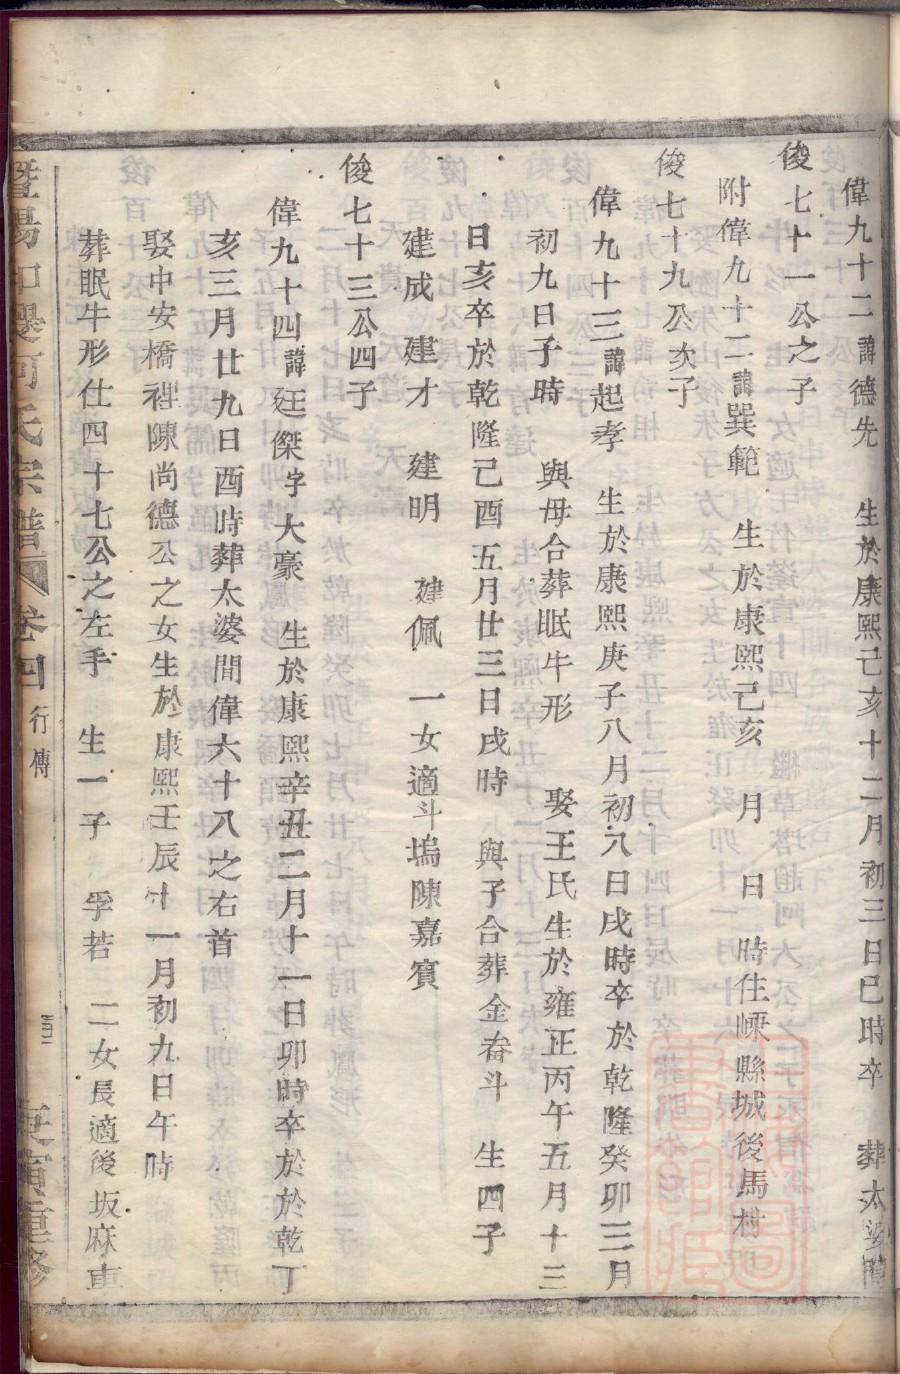 偉九十二諱德先　生於康熙己亥十二月初三日巳時卒　葬太婆間
俊七十一公之子
附偉九十二諱巽範　生於康熙己亥　月　日　時住嵊縣城後馬村
俊七十九公次子
偉九十三諱起孝　生於康熙庚子八月初八日戌時卒於乾隆癸卯三月
初九日子時　與母合葬眠牛形　娶王氏生於雍正丙午五月十三
日亥卒於乾隆己酉五月廿三日戌時　與子合葬金畚斗　生四子
建成　建才　建明　建佩　一女適斗塢陳嘉賓
俊七十三公四子
偉九十四諱廷傑字大豪　生於康熙辛丑二月十一日卯時卒於於乾丁
亥三月廿九日酉時葬太婆間偉六十八之右首
娶中安橋裡陳尚德公之女生於康熙壬辰十一月初九日午時
葬眠牛形仕四十七公之左手　生一子　孚若　二女長適後坂麻車
暨陽 何氏宗譜 卷四 行傳
庚寅重修